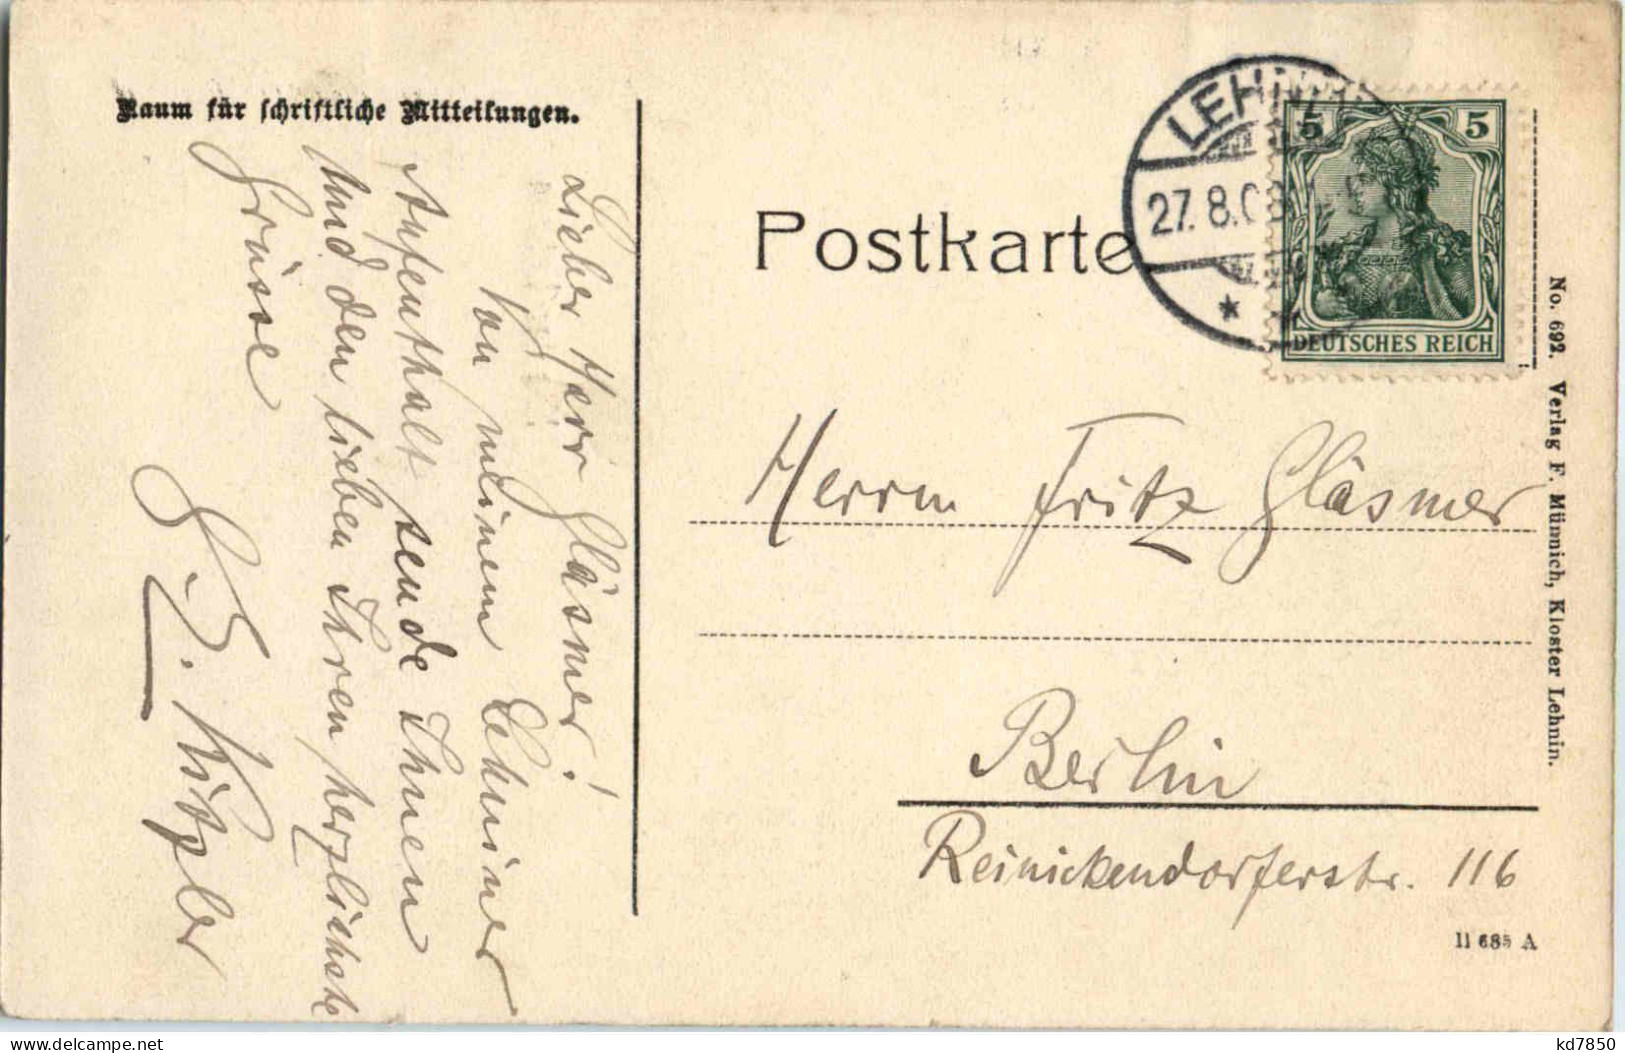 Raum für schriftliche Mitteilungen.
Lieber Herr Gläsmer!
Von meinem Lehniner
Aufenthalt sende Ihnen
und den lieben Ihren herzlichste
Grüsse
Kitzler
Postkarte
LEHNIN
27.8.08
5
5
DEUTSCHES REICH
Herrn Fritz Gläsmer
Berlin
Reinickendorferstr. 116
No. 692. Verlag F. Münnich, Kloster Lehnin.
II 685 A
kd7850